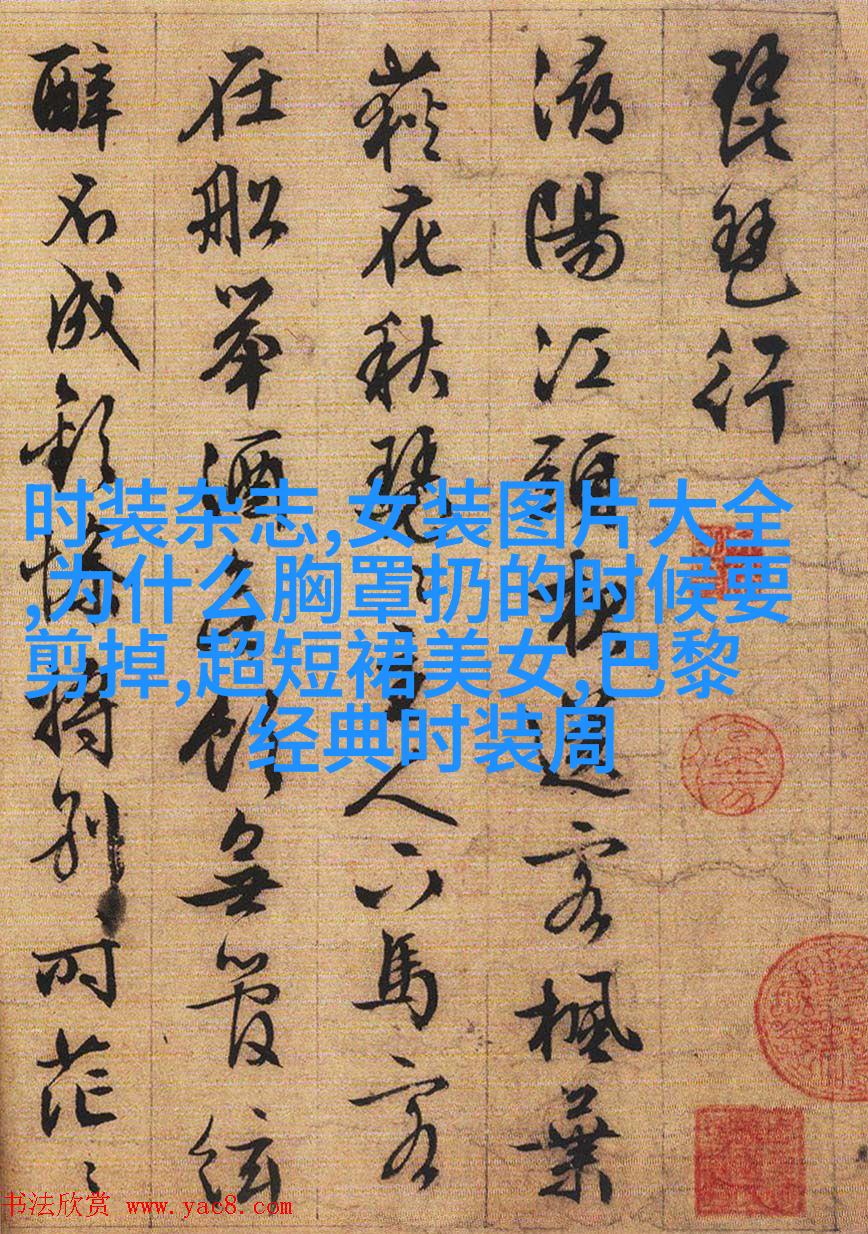 琵琶行
潯陽江頭夜送客楓葉
荻花秋瑟〻主人下馬客
在船舉酒欲飲無管絃
醉不成歡慘將別時茫〻
时装杂志,女装图片大全
,为什么胸罩扔的时候要
剪掉,超短裙美女,巴黎
经典时装周
书法欣赏 www.yac8.com